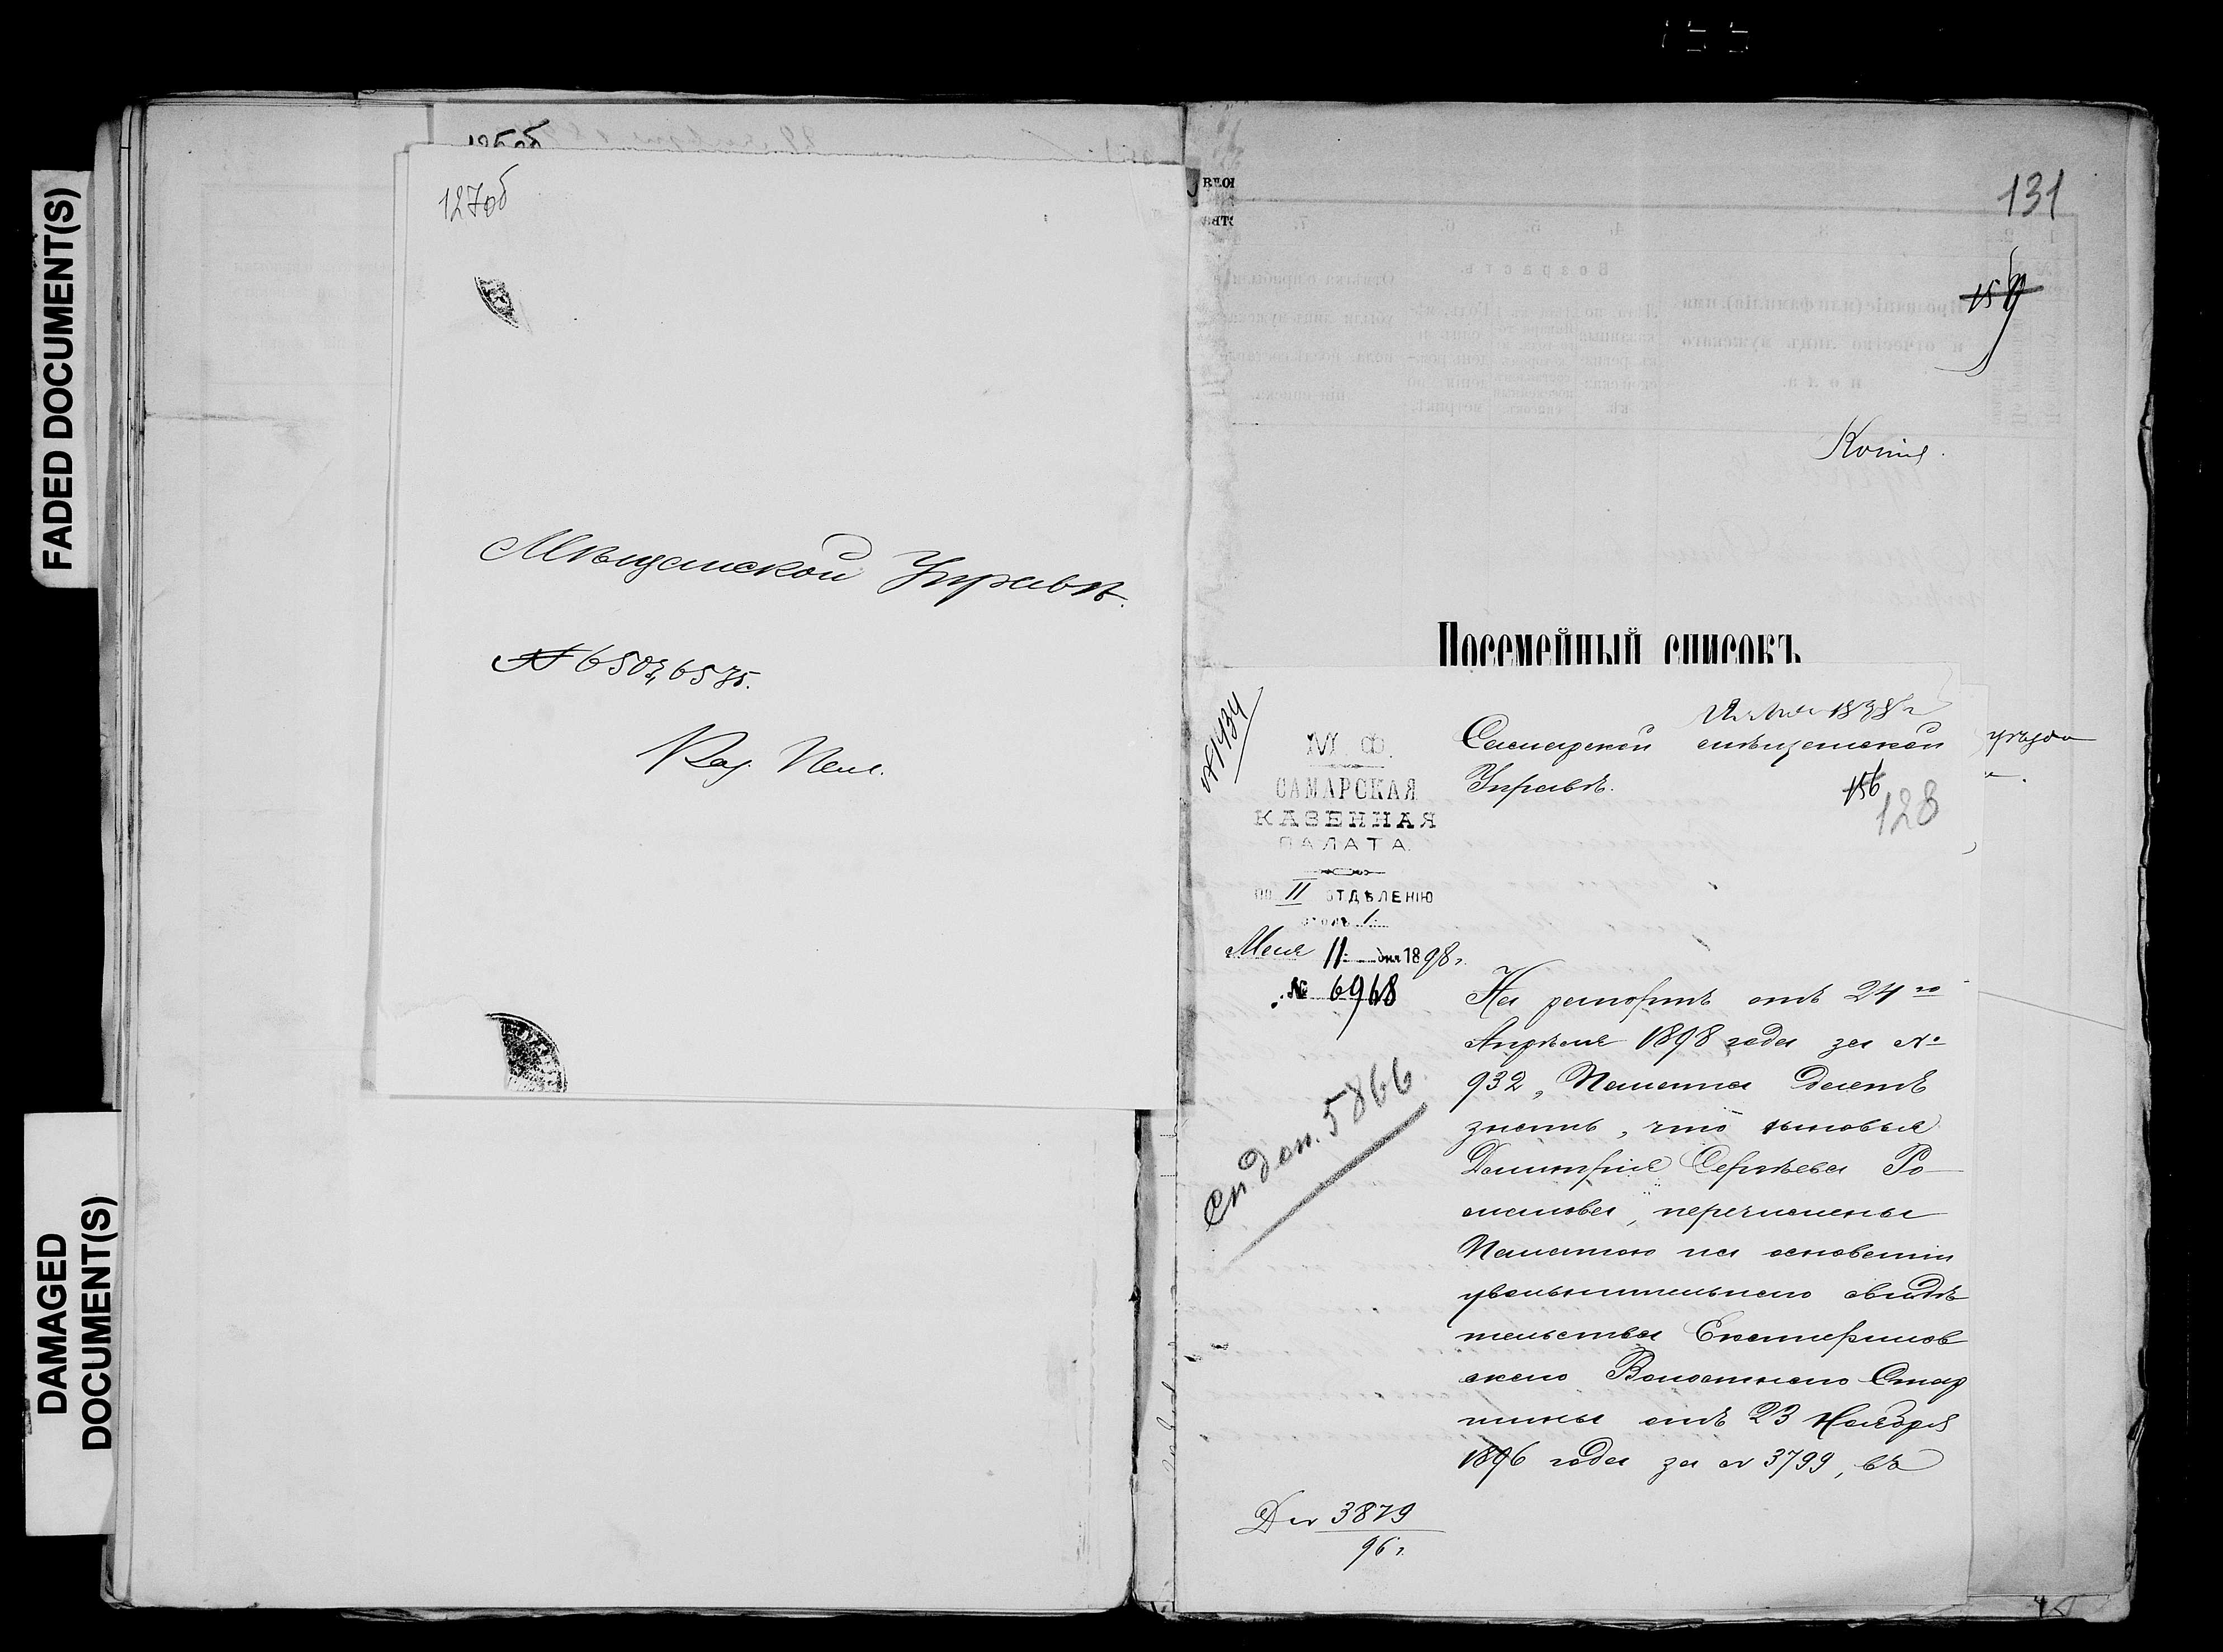 FADED DOCUMENT(S)
DAMAGED
DOCUMENT(S)
127об
Мѣщанской Управѣ.
№ 6503, 6575.
Каз. Пал.
131
Копія.
Посемейный списокъ
№ 1434
М. Ф.
САМАРСКАЯ
КАЗЕННАЯ
ПАЛАТА.
по II ОТДѢЛЕНІЮ
столъ 1.
Мая 11 дня 1898 г.
№ 6968
Самарской мѣщанской
Управѣ.
156
128
уѣзда
На рапортъ отъ 24 го
Апрѣля 1898 года за №
932, Палата даетъ
знать, что сыновья
Димитрія Сергѣева Ро-
манова, перечислены
Палатою на основаніи
увольнительнаго свидѣ
тельства Екатеринов
скаго Волостнаго Стар
шины отъ 23 Ноября
1896 года за № 3799, въ
Сп доп. 5866
Д № 3879
96 г.